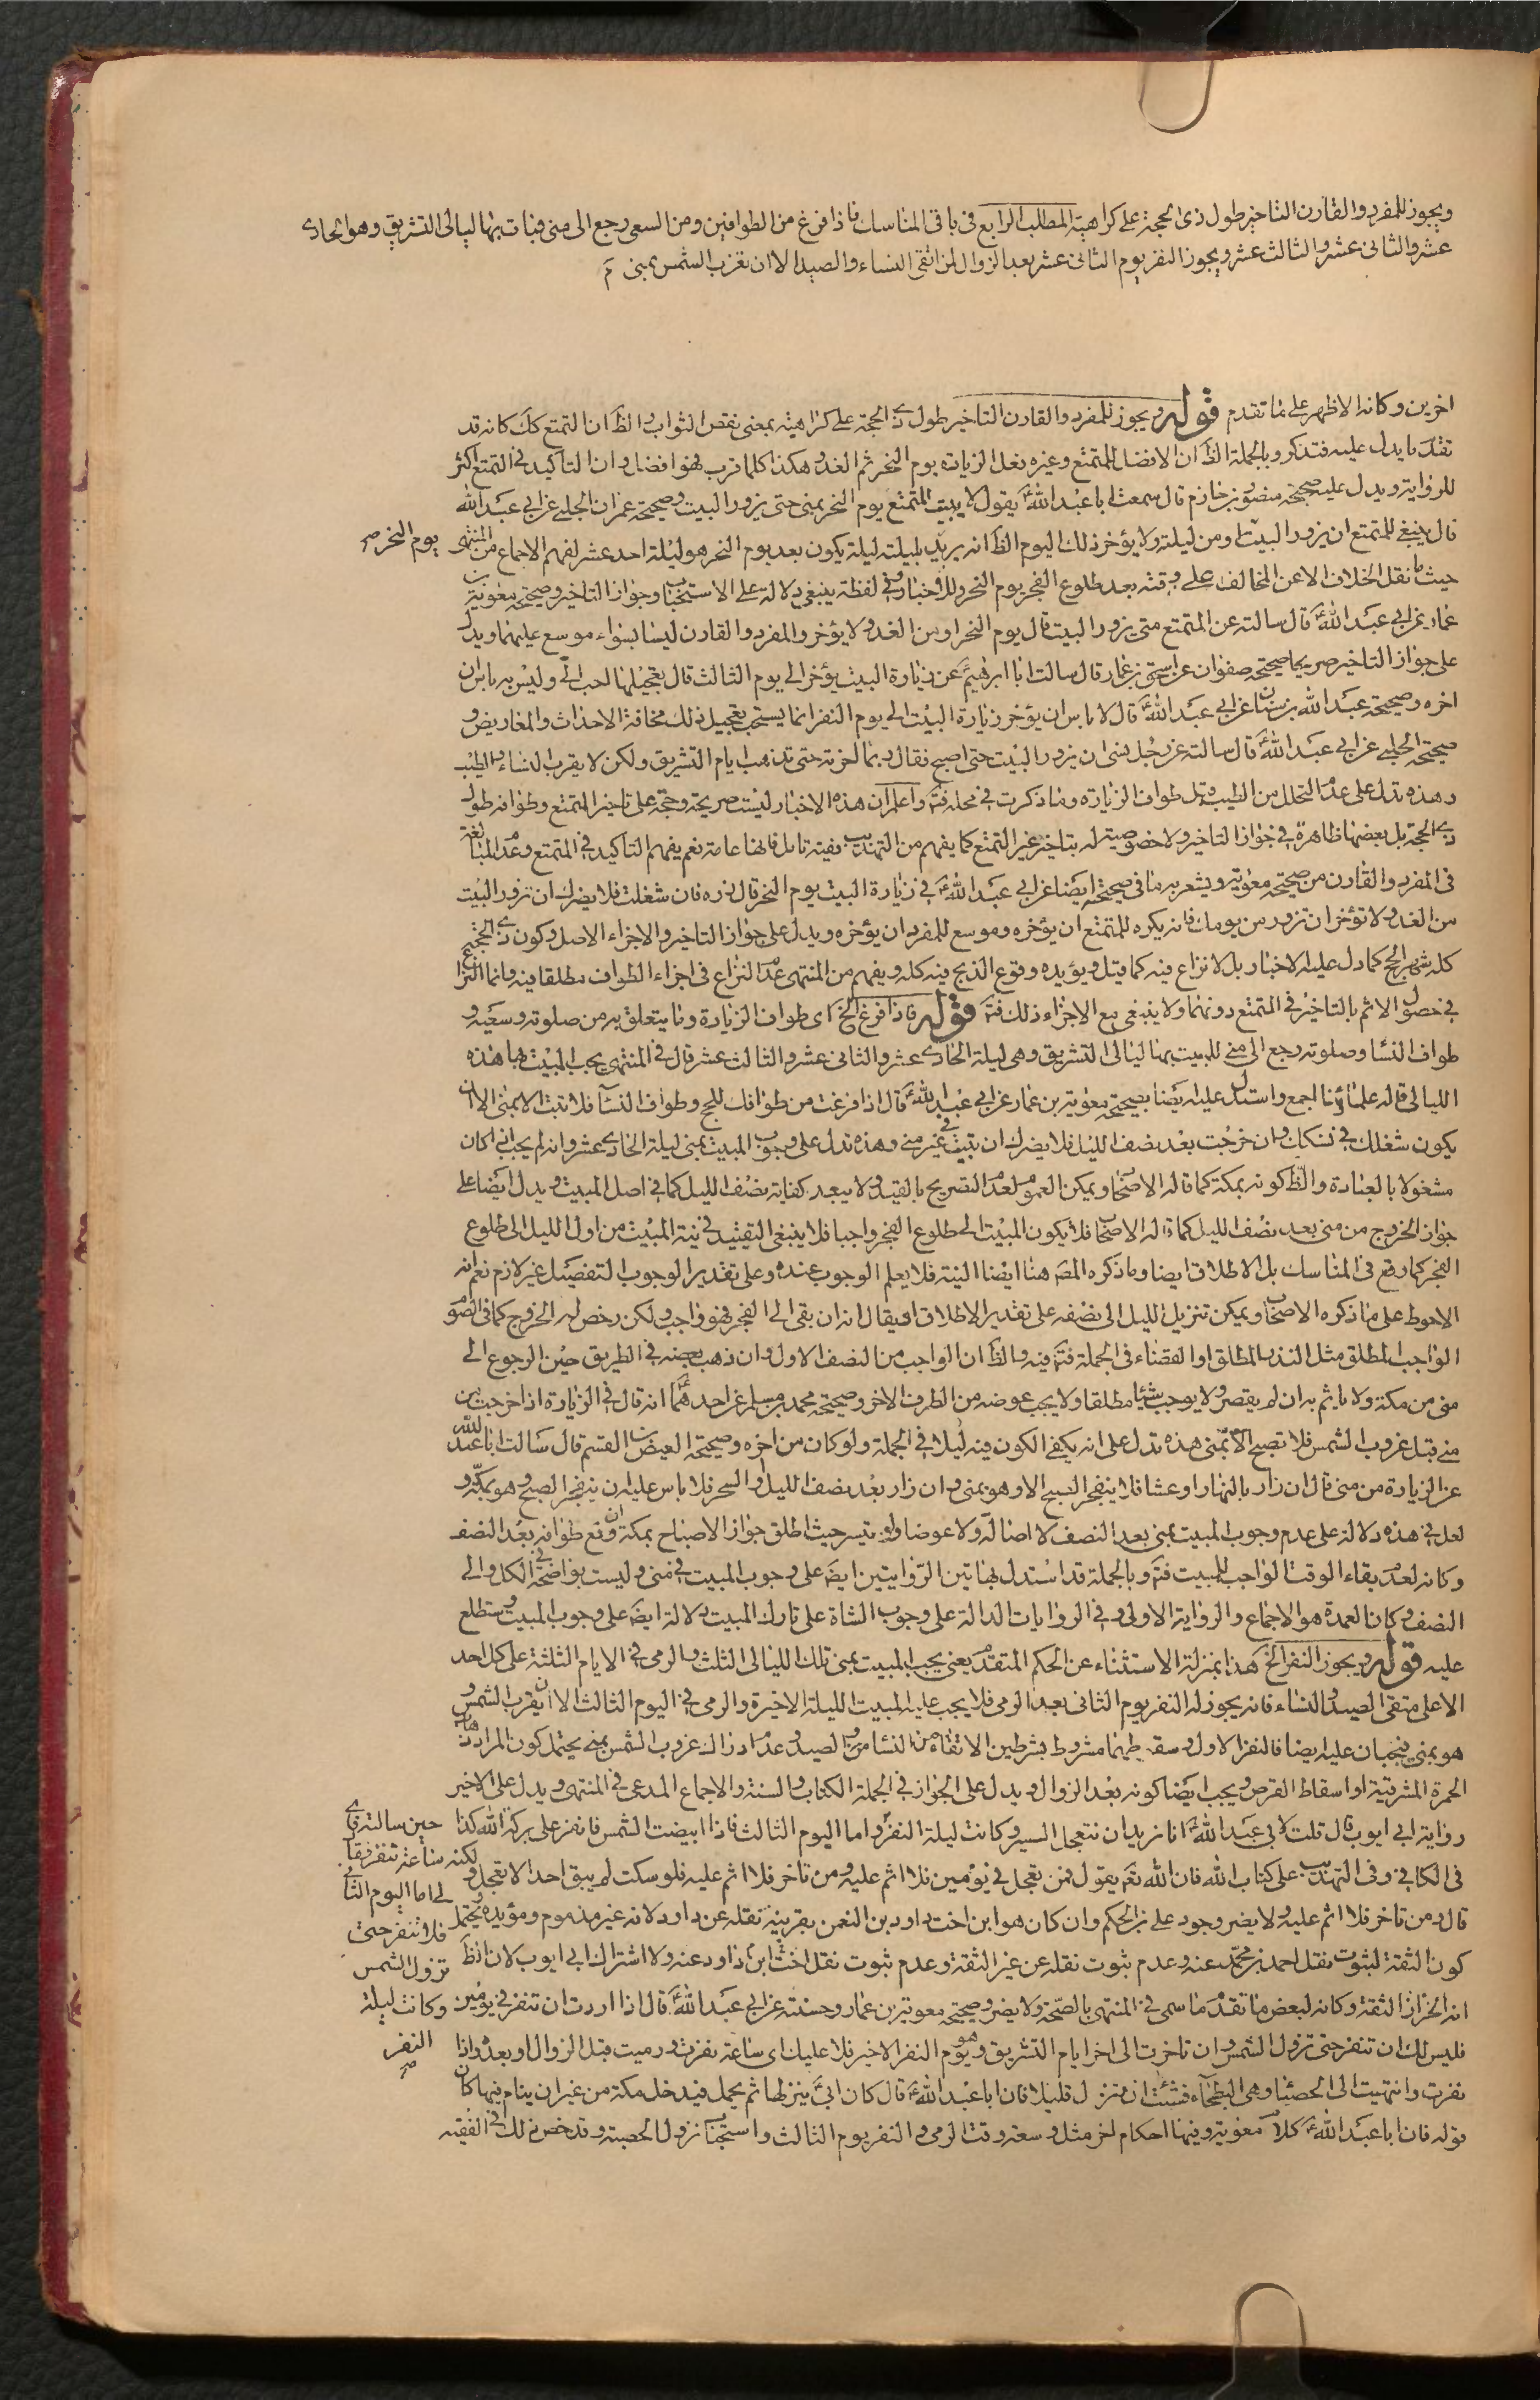 ويجوز للمفرد والقارن التاخير طول ذى الحجة على كراهية المطلب الرابع فى باقى المناسك فاذا فرغ من الطوافين ومن السعى رجع الى منى فبات بها ليالى التشريق وهو الحادى
عشر والثانى عشر والثالث عشر ويجوز النفر يوم الثانى عشر بعد الزوال لمن اتقى النساء والصيد الا ان تغرب الشمس بمنى
اخرين وكانه الاظهر على ما تقدم قوله ويجوز للمفرد والقارن التاخير طول ذى الحجة على كراهية بمعنى نقص الثواب والظ ان التمتع كك كانه قد
تقدم ما يدل عليه فتذكر وبالجملة الظ ان الافضل للمتمتع وغيره فعل الزيادة يوم النحر ثم الغد وهكذا كلما قرب فهو افضل وان التاكيد فى التمتع اكثر
للرواية ويدل عليه صحيحة منصور بن حازم قال سمعت ابا عبد الله ع يقول لا يبيت المتمتع يوم النحر بمنى حتى يزور البيت وصحيحة عمران الحلبى عن ابى عبد الله
قال ينبغى للمتمتع ان يزور البيت او من ليلته ولا يؤخر ذلك اليوم الظ انه يريد بليلته ليلة يكون بعد يوم النحر هو ليلة احد عشر لفهم الاجماع من المنتهى يوم النحر صح
حيث ما نقل الخلاف الا عن المخالف على وقته بعد طلوع الفجر يوم النحر وللاخبار وفى لفظة ينبغى دلالة على الاستحباب وجواز التاخير وصحيحة معوية بن
عمار عن ابى عبد الله ع قال سالته عن المتمتع متى يزور البيت قال يوم النحر او من الغد ولا يؤخر والمفرد والقارن ليسا بسواء موسع عليهما ويدل
على جواز التاخير صريحا صحيحة صفوان عن اسحق بن عمار قال سالت ابا ابرهيم ع عن زيارة البيت يؤخر الى يوم الثالث قال تعجيلها احب الى وليس به باس ان
اخره وصحيحة عبد الله بن سنان عن ابى عبد الله ع قال لا باس ان يؤخر زيارة البيت الى يوم النفر انما يستحب تعجيل ذلك مخافة الاحداث والمعاريض و
صحيحة الحلبى عن ابى عبد الله ع قال سالته عن رجل نسى ان يزور البيت حتى اصبح فقال ربما اخرته حتى تذهب ايام التشريق ولكن لا يقرب النساء والطيب
وهذه تدل على عدم التحلل من الطيب قبل طواف الزيارة وما ذكرت فى محله فت واعلم ان هذه الاخبار ليست صريحة وحجة على تاخير المتمتع وطوافه طول
ذى الحجة بل بعضها ظاهرة فى جواز التاخير ولا خصوصية له بتاخير غير التمتع كما يفهم من التهذيب ففيه تامل فانها عامة نعم يفهم التاكيد فى المتمتع وعدم المبالغة
فى المفرد والقارن من صحيحة معوية ويشعر به ما فى صحيحته ايضا عن ابى عبد الله ع فى زيارة البيت يوم النحر قال زره فان شغلت فلا يضرك ان تزور البيت
من الغد ولا تؤخر ان تزور من يومك فانه يكره للمتمتع ان يؤخره وموسع للمفرد ان يؤخره ويدل على جواز التاخير والاجزاء الاصل وكون ذى الحجة
كله شهر الحج كما دل عليه الاخبار بل لا نزاع فيه كما قيل ويؤيده وقوع الذبح فيه كله ويفهم من المنتهى عدم النزاع فى اجزاء الطواف مطلقا فيه وانما النزاع
فى حصول الاثم بالتاخير فى المتمتع دونهما ولا ينبغى مع الاجزاء ذلك فت قوله فاذا فرغ الخ اى طواف الزيارة وما يتعلق به من صلوته وسعيه و
طواف النساء وصلوته رجع الى منى للمبيت بها ليالى التشريق وهى ليلة الحادى عشر والثانى عشر والثالث عشر قال فى المنتهى يجب المبيت بها هذه
الليالى قاله علماؤنا اجمع واستدل عليه ايضا بصحيحة معوية بن عمار عن ابى عبد الله ع قال اذا فرغت من طوافك للحج وطواف النساء فلا تبت الا بمنى الا ان
يكون شغلك فى نسكك وان خرجت بعد نصف الليل فلا يضرك ان تبيت فى غير منى وهذه تدل على وجوب المبيت بمنى ليلة الحادى عشر وانه لم يجب ان كان
مشغولا بالعبادة والظ كونه بمكة كما قاله الاصحاب ويمكن العموم لعدم التصريح بالقيد ولا يبعد كفاية نصف الليل كما فى اصل المبيت ويدل ايضا على
جواز الخروج من منى بعد نصف الليل كما قاله الاصحاب فلا يكون المبيت الى طلوع الفجر واجبا فلا ينبغى التقييد فى نية المبيت من اول الليل الى طلوع
الفجر كما وقع فى المناسك بل الاطلاق ايضا وما ذكره المصه هنا ايضا النية فلا يعلم الوجوب عنده وعلى تقدير الوجوب التفصيل غير لازم نعم انه
الاحوط على ما ذكره الاصحاب ويمكن تنزيل الليل الى نصفه على تقدير الاطلاق او يقال انه ان بقى الى الفجر فهو واجب ولكن رخص له الخروج كما فى الصوم
الواجب المطلق مثل النذر المطلق او القضاء فى الجملة فت فيه والظ ان الواجب من النصف الاول وان ذهب بعضه فى الطريق حين الرجوع الى
منى من مكة ولا ياثم به ان لم يقصر ولا يوجب شيئا مطلقا ولا يجب عوضه من الطرف الاخر وصحيحة محمد بن مسلم عن احدهما ع انه قال فى الزيارة اذا خرجت من
منى قبل غروب الشمس فلا تصبح الا بمنى هذه تدل على انه يكفى الكون فيه ليلا فى الجملة ولو كان من اخره وصحيحة العيص بن القسم قال سالت ابا عبد الله
عن الزيارة من منى قال ان زار بالنهار او عشا فلا ينفجر الصبح الا وهو بمنى وان زار بعد نصف الليل او السحر فلا باس عليه ان ينفجر الصبح وهو بمكة و
لعل فى هذه دلالة على عدم وجوب المبيت بمنى بعد النصف لا اصالة ولا عوضا ولو تيسر حيث اطلق جواز الاصباح بمكة ان وقع طوافه بعد النصف
وكانه لعدم بقاء الوقت الواجب للمبيت فت وبالجملة قد استدل بهاتين الروايتين ايضا على وجوب المبيت فى منى وليست بواضحة فى الكل والى
النصف وكان العمدة هو الاجماع والرواية الاولى وفى الروايات الدالة على وجوب الشاة على تارك المبيت دلالة ايضا على وجوب المبيت وستطلع
عليه قوله ويجوز النفر الخ هذا بمنزلة الاستثناء عن الحكم المتقدم يعنى يجب المبيت بمنى تلك الليالى الثلث والرمى فى الايام الثلثة على كل احد
الا على متقى الصيد والنساء فانه يجوز له النفر يوم الثانى بعد الرمى فلا يجب عليه المبيت الليلة الاخيرة والرمى فى اليوم الثالث الا ان يغرب الشمس و
هو بمنى فيجبان عليه ايضا فالنفر الاول وسقوطهما مشروط بشرطين الاتقاء من النساء والصيد وعدم ادراك غروب الشمس بمنى يحتمل كون المراد ذهاب
الحمرة المشرقية او اسقاط القرص ويجب ايضا كونه بعد الزوال ويدل على الجواز فى الجملة الكتاب والسنة والاجماع المدعى فى المنتهى ويدل على الاخير
رواية ابى ايوب قال قلت لابى عبد الله ع انا نريد ان نتعجل السير وكانت ليلة النفر واما اليوم الثالث فاذا ابيضت الشمس فانفر على بركة الله كذا حين سالته فاى
فى الكافى وفى التهذيب على كتاب الله فان الله تعم يقول فمن تعجل فى يومين فلا اثم عليه ومن تاخر فلا اثم عليه فلو سكت لم يبق احد الا تعجل و لكنه ساعة ننفر فقا
قال ومن تاخر فلا اثم عليه ولا يضر وجود على بن الحكم وان كان هو ابن اخت داود بن النعمن بقرينة نقله عن داود لانه غير مذموم ومؤيده يحتمل لى اما اليوم الثانى
كون الثقة لثبوت نقل احمد بن محمد عنه وعدم ثبوت نقله عن غير الثقة وعدم ثبوت نقل اخت ابن داود عنه ولا اشتراك ابى ايوب لان الظ فلا تنفر حتى
انه الخزاز الثقة وكانه لبعض ما تقدم ما سمى فى المنتهى بالصحة ولا يضر وصحيحة معوية بن عمار وحسنته عن ابى عبد الله ع قال اذا اردت ان تنفر فى يومين تزول الشمس
فليس لك ان تنفر حتى تزول الشمس وان تاخرت الى اخر ايام التشريق وهو يوم النفر الاخير فلا عليك اى ساعة نفرت ورميت قبل الزوال او بعده واذا وكانت ليلة
نفرت وانتهيت الى الحصبا وهى البطحاء فشئت ان تنزل قليلا فان ابا عبد الله ع قال كان ابى ينزلها ثم يحمل فيدخل مكة من غير ان ينام فيها كان النفر صح
قوله فان ابا عبد الله ع كلام معوية وفيها احكام اخر مثل وسعة وقت الرمى والنفر يوم الثالث واستحباب نزول الحصبة وقد خص ذلك فى الفقيه